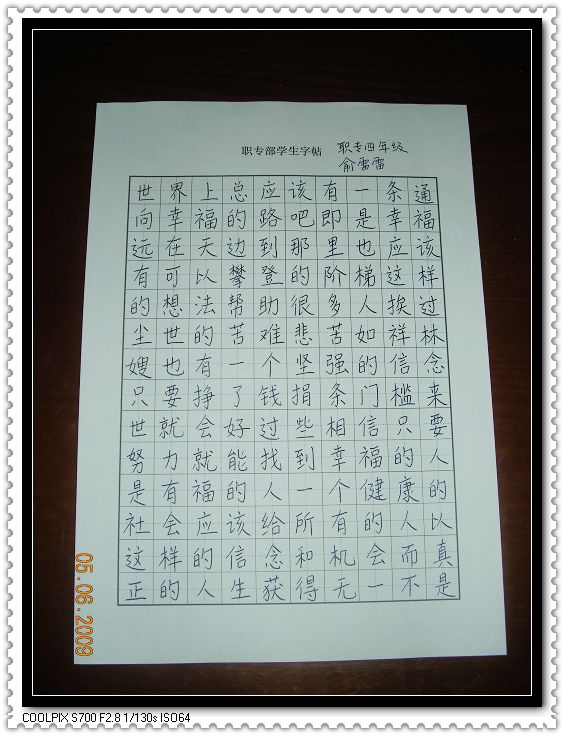 职专部学生字帖
职专四年级
俞雷雷
世界上总应该有一条通
向幸福的路吧即是幸福
远在天边到那里也应该
有可以攀登的阶梯这样
的想法帮助很多人挨过
尘世的苦难悲苦如祥林
嫂也有一个坚强的信念
只要挣了钱捐条门槛来
世就会好过些相信只要
努力就能找到幸福的人
是有福的人一个健康的
社会应该给所有的人以
这样的信念和机会而真
正的人生获得无一不是
05.06.2009
COOLPIX S700 F2.8 1/130s ISO64